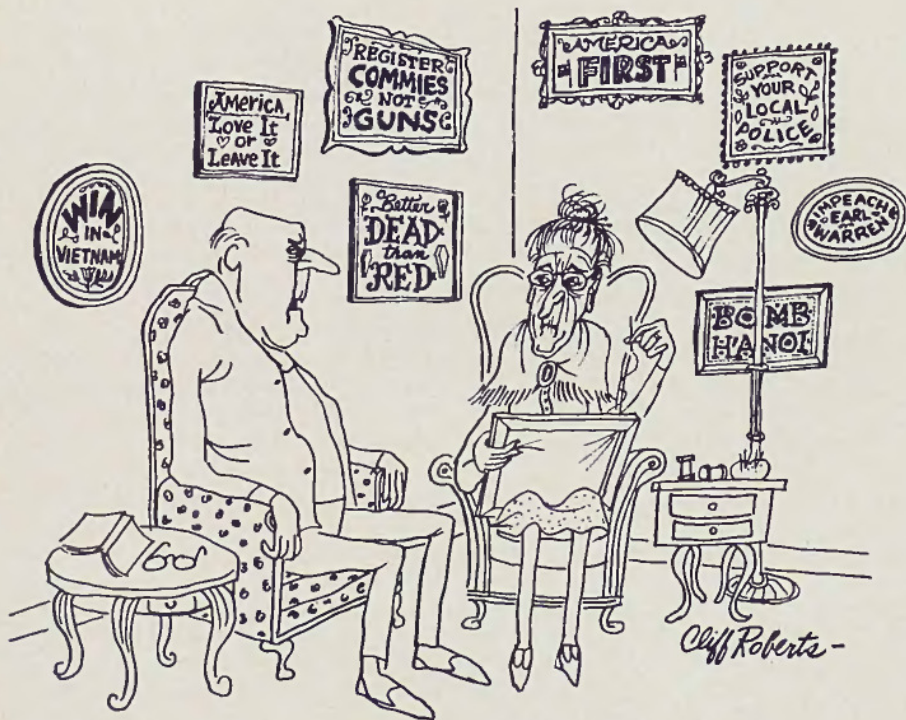 WIN
IN
VIETNAM
AMERICA
Love It
or
Leave It
REGISTER
COMMIES
NOT
GUNS
Better
DEAD
than
RED
AMERICA
FIRST
SUPPORT
YOUR
LOCAL
POLICE
IMPEACH
EARL
WARREN
BOMB
HANOI
Cliff Roberts-